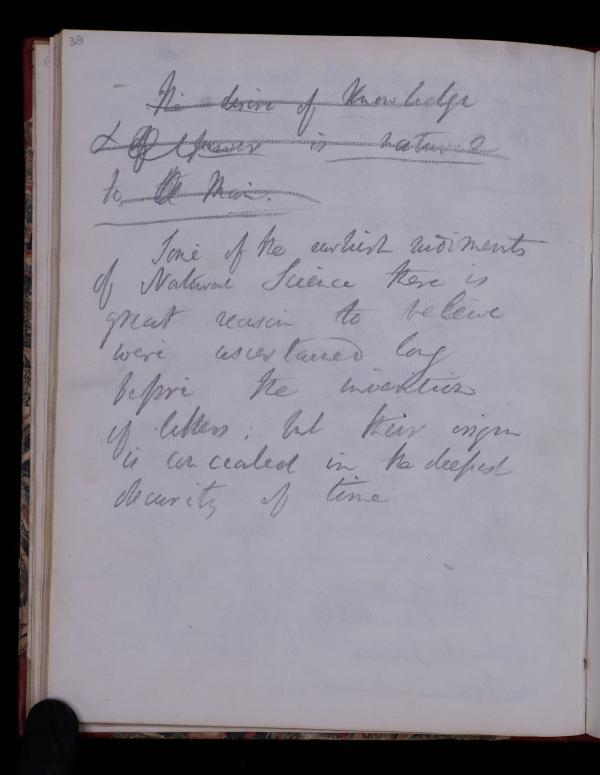 38
- The desire of Knowledge
& of power is natural
to Man.
Some of the earliest rudiments
of Natural Science there is
great reason to believe
were ascertained long
before the invention
of letters; but their origin
is concealed in the deepest
obscurity of time